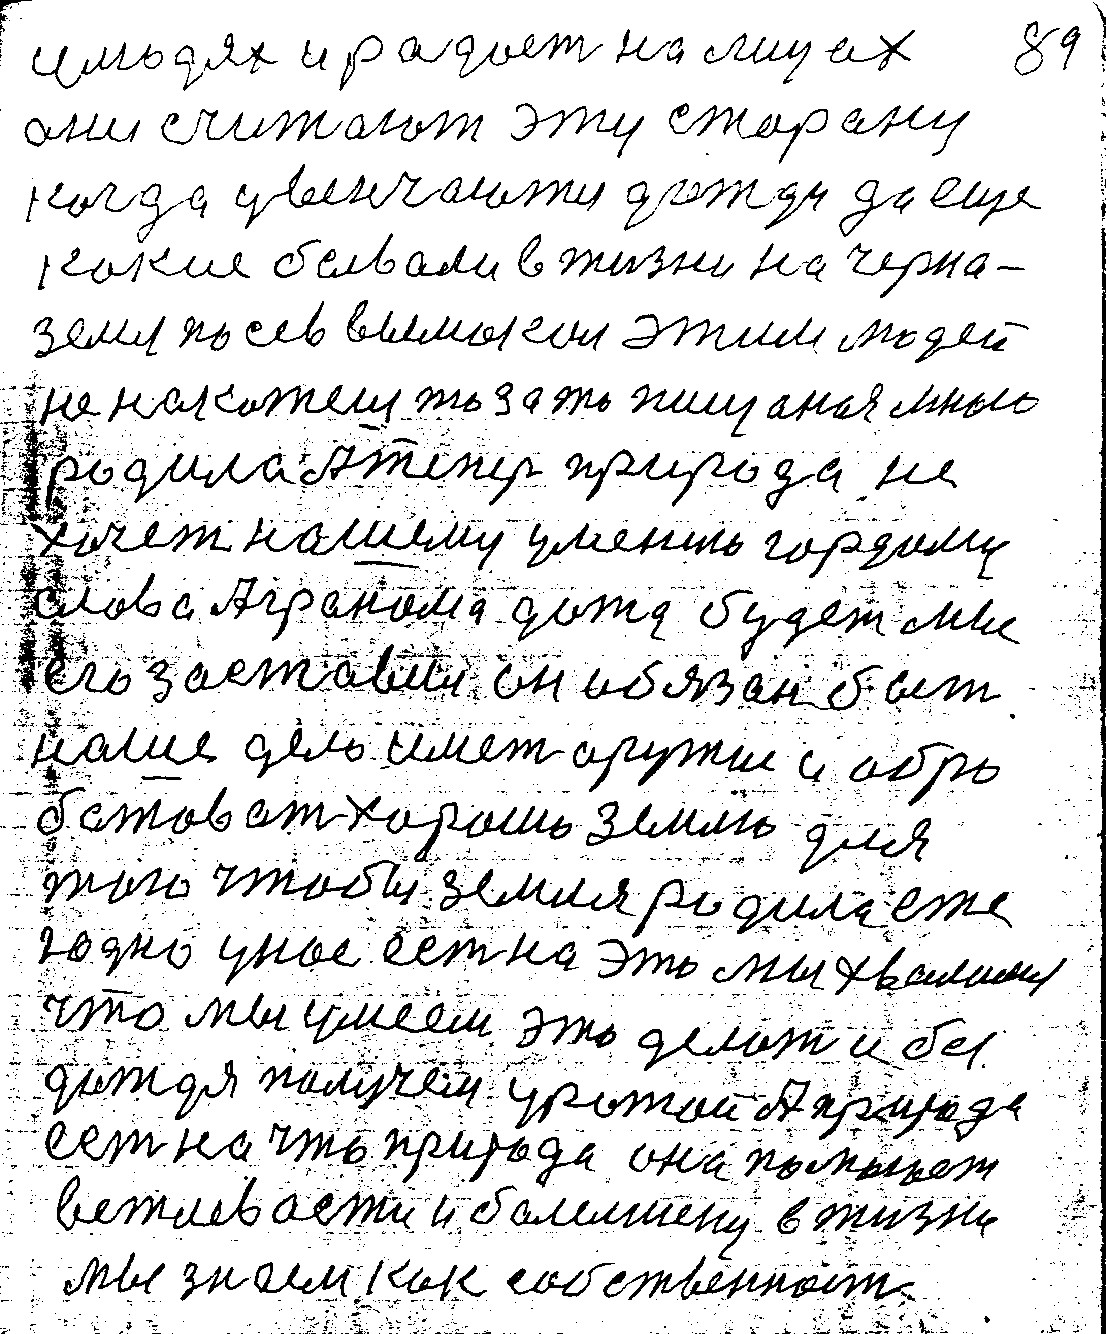 улюдях и радост на лицах 89
они считают эту сторану
когда увенчаютя дождя да еще
какие бывали в жизни на черна-
земля посев вымокал этим людей
не накажеш то за то пшцаная мною
родила А тепер природа не
хочет нашему умению гордому
слова Агранома дожд будет мы
его заставим он обязан быт
наше дело имет оружие и обро
батоват хорошо землю для
того чтобы земля родила еже
годно унас ест на это мы хвалимся
что мы умеем это делат и без
дождя получем урожай А природа
ест на что природа она помынает
вежлевасти и болмшену в жизни
мы знаем как собственност